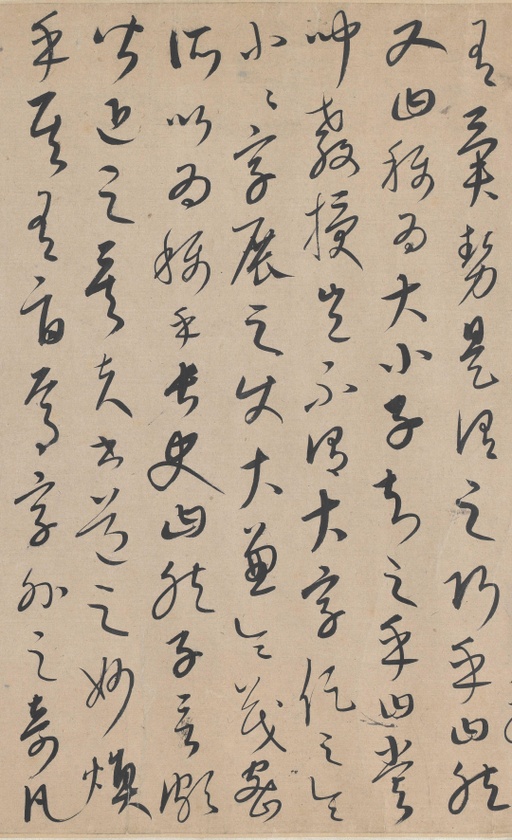 有異勢是謂之巧乎曰然
又曰稱為大小子知之乎曰嘗
叩教授豈不謂大字促之令
小〻字展之使大兼令茂密
所以為稱乎長史曰然子言頗
皆近之矣夫書道之妙煥
乎其有旨焉字外之奇凡